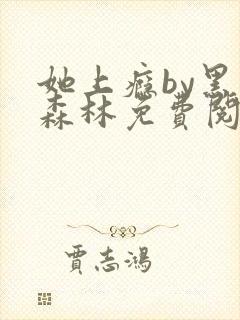 她上瘾by黑
森林免费阅
贾志鸿